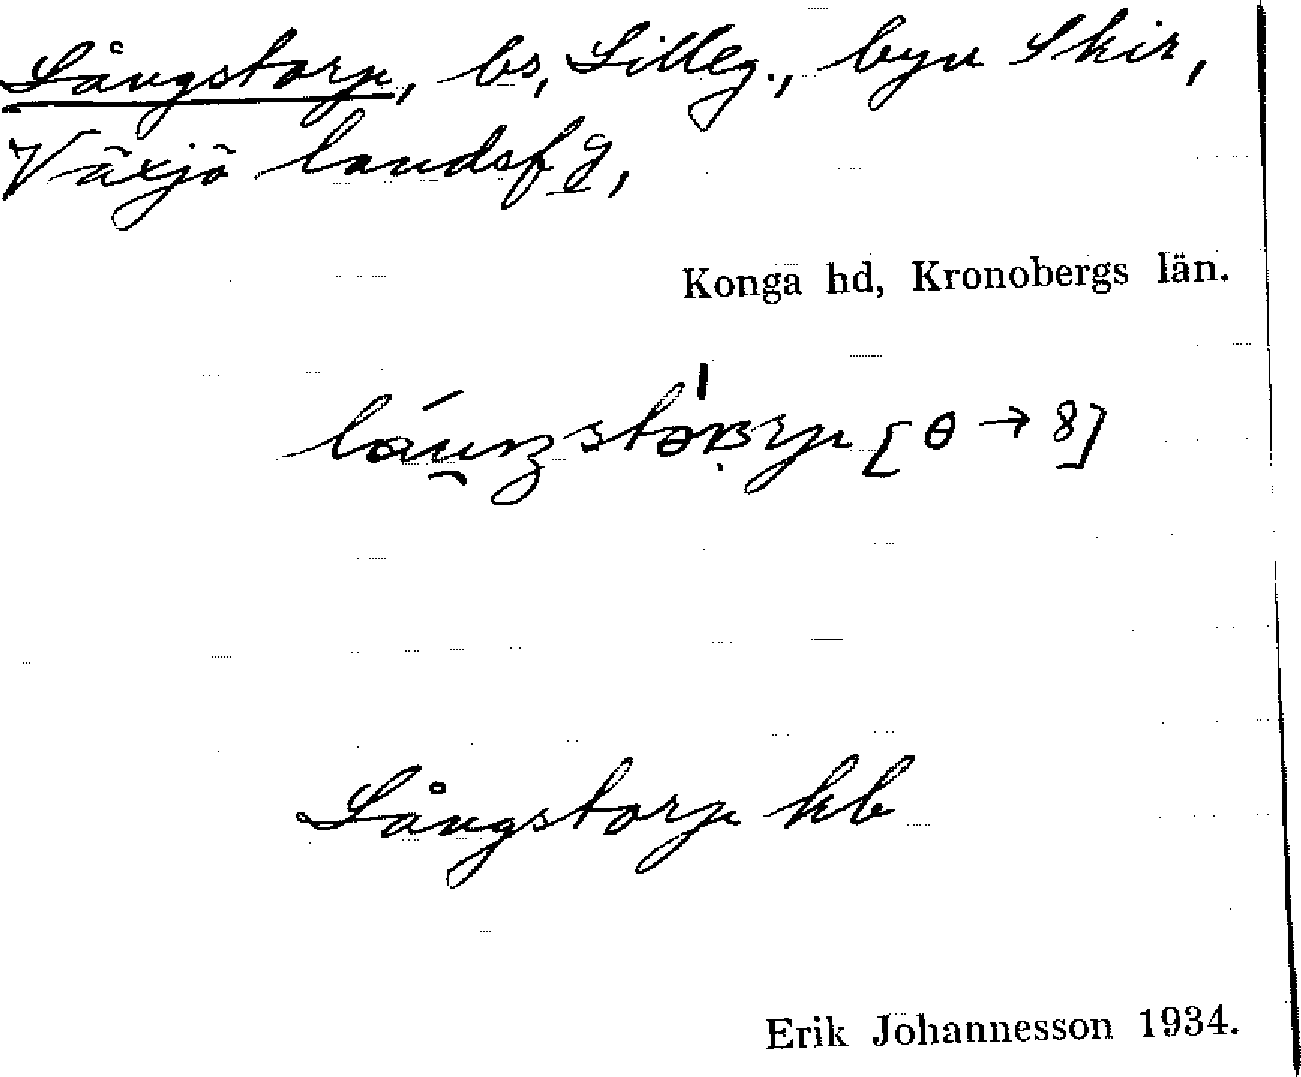 Långstorp, bs, Lilleg., byn Skir,
Växjö landsfg,
Konga hd, Kronobergs län.
[θ → 8]
Långstorp kb
Erik Johannesson 1934.